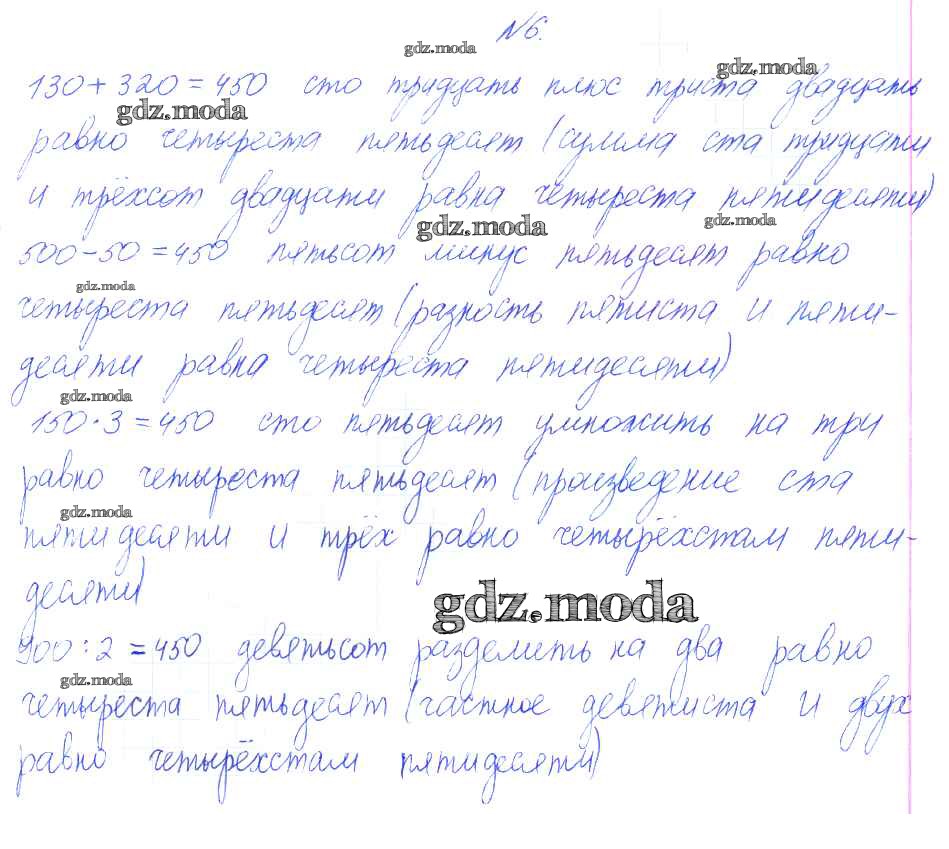 №6.
130+320=450 сто тридцать плюс триста двадцать
равно четыреста пятьдесят (сумма ста тридцати
и трёхсот двадцати равна четыреста пятидесяти)
500-50=450 пятьсот минус пятьдесят равно
четыреста пятьдесят (разность пятиста и пяти-
десяти равна четыреста пятидесяти)
150·3=450 сто пятьдесят умножить на три
равно четыреста пятьдесят (произведение ста
пятидесяти и трёх равно четырёхстам пяти-
десяти)
900:2=450 девятьсот разделить на два равно
четыреста пятьдесят (частное девятиста и двух
равно четырёхстам пятидесяти)
gdz.moda
gdz.moda
gdz.moda
gdz.moda
gdz.moda
gdz.moda
gdz.moda
gdz.moda
gdz.moda
gdz.moda